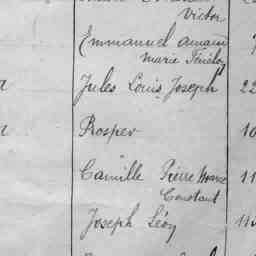 Victor
Emmanuel Amand
Marie Fénélon
Jules Louis Joseph 22
Prosper 10
Camille Pierre 11
Constant
Joseph Léon 11